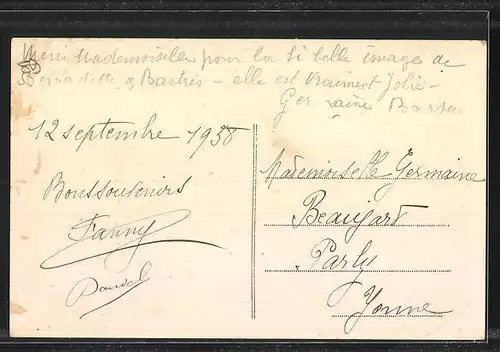 Merci Mademoiselle pour la si belle image de
Bernadette à Bartrès - elle est vraiment Jolie -
Germaine
12 septembre 1938
Bons souvenirs
Fanny
Mademoiselle Germaine
Beaujard
Parly
Yonne